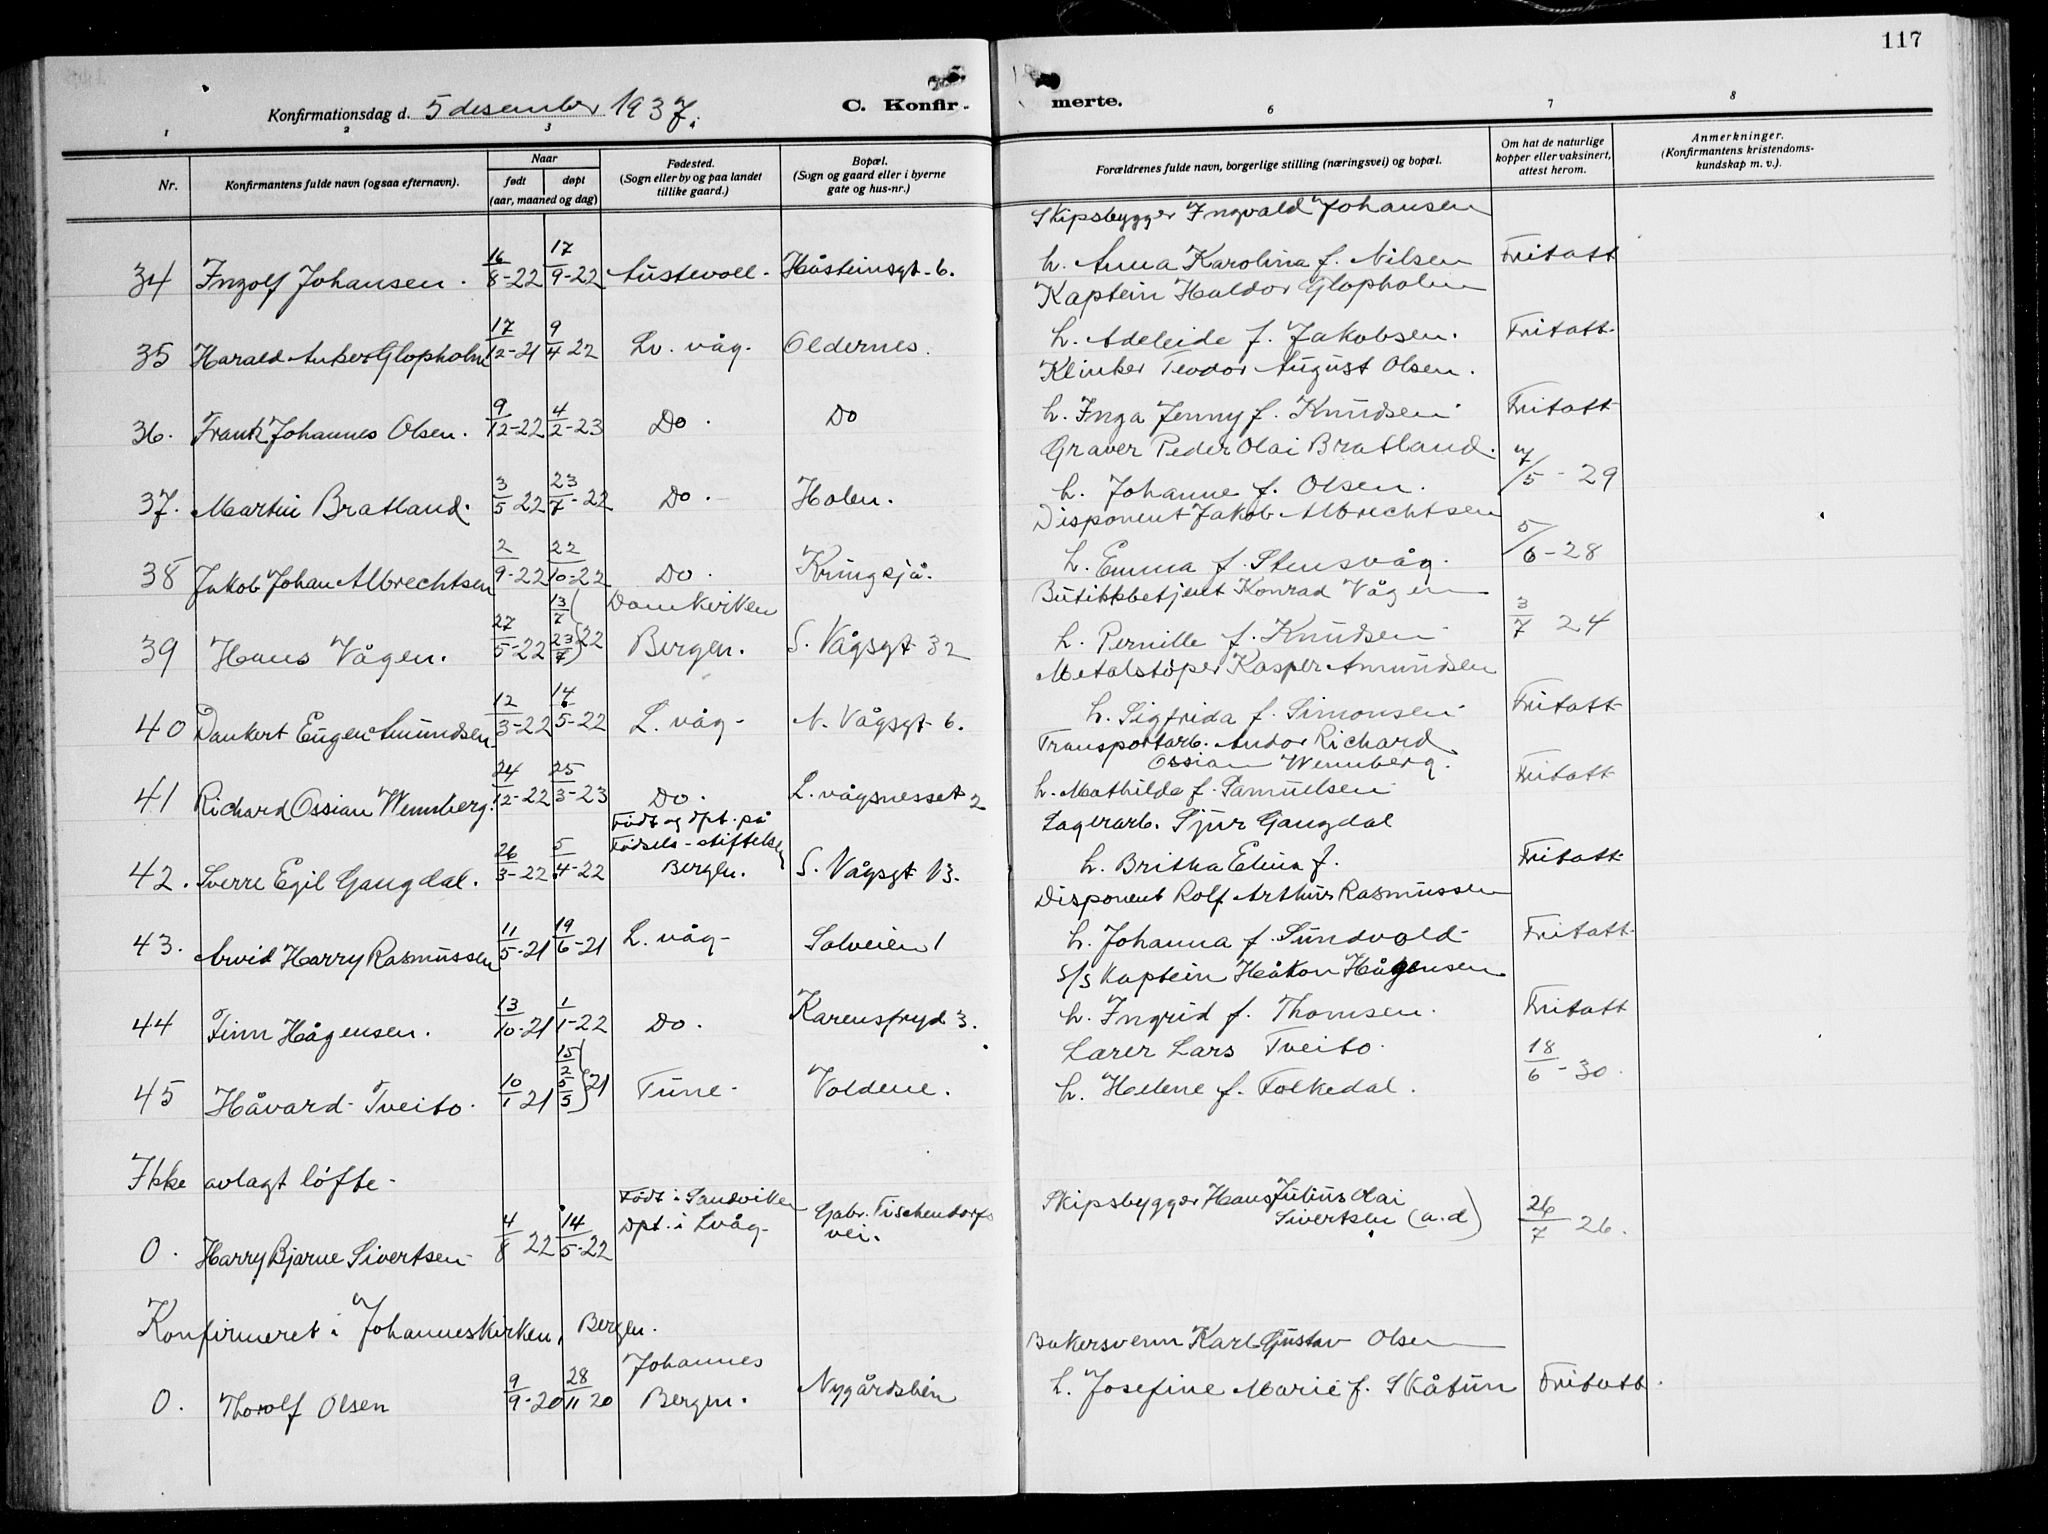 117
Konfirmationsdag d. 5 desember 1937.
C. Konfirmerte.
1 2 3 6 7 8
Nr.
Konfirmantens fulde navn (ogsaa efternavn).
Naar
født døpt
(aar, maaned og dag)
Fødested.
(Sogn eller by og paa landet
tillike gaard.)
Bopæl.
(Sogn og gaard eller i byerne
gate og hus-nr.)
Forældrenes fulde navn, borgerlige stilling (næringsvei) og bopæl.
Om hat de naturlige
kopper eller vaksinert,
attest herom.
Anmerkninger.
(Konfirmantens kristendoms-
kundskap m. v.).
Skipsbygger Ingvald Johansen
34 Ingolf Johansen. 16/8-22 17/9-22 Austevoll. Håsteinsgt. 6. h. Anna Karolina f. Nilsen Fritatt
Kaptein Haldor Glopholm
35 Harald Anker Glopholm 17/12-21 9/4-22 Lv. våg. Oldernes. h. Adeleide f. Jakobsen. Fritatt
Klinker Teodor August Olsen.
36. Frank Johannes Olsen. 9/12-22 4/2-23 Do. Do h. Inga Jenny f. Knudsen Fritatt
Graver Peder Olai Bratland.
37. Martin Bratland. 3/5-22 23/7-22 Do. Holen. h. Johanne f. Olsen. 7/5-29
Disponent Jakob Albrechtsen
38 Jakob Johan Albrechtsen 2/9-22 22/10-22 Do. Kringsjå. h. Emma f. Stensvåg. 5/6-28
Domkirken
Butikkbetjent Konrad Vågen
39 Hans Vågen. 27/5-22 13/7 23/7 22 Bergen. S. Vågsgt 32 h. Pernille f. Knudsen 3/7 24
Metalstøper Kasper Amundsen
40 Dankert Eugen Amundsen 12/3-22 14/5-22 L. våg- N. Vågsgt 6. h. Sigfrida f. Simonsen Fritatt
Transportarb. Andor Richard
Ossian Wennberg.
41 Richard Ossian Wennberg. 24/12-22 25/3-23 Do. L. vågsnesset 2 h. Mathilda f. Samuelsen Fritatt
Født og dpt. på
Fødsels-stiftelsen
Lagerarb. Sjur Gangdal
42. Sverre Egil Gangdal. 26/3-22 5/4-22 Bergen. S. Vågsgt 13. h. Britha Elina f. Fritatt
Disponent Rolf Arthur Rasmussen
43. Arvid Harry Rasmussen 11/5-21 19/6-21 L. våg- Solveien 1 h. Johanna f. Sundvold Fritatt
S/S Kaptein Håkon Hågensen
44 Finn Hågensen. 13/10-21 1/1-22 Do. Karensfryd 3. h. Ingrid f. Thomsen. Fritatt
Lærer Lars Tveito.
45 Håvard Tveito. 10/1 21 15/2 5/5 21 Tune- Voldene. h. Helene f. Folkedal. 18/6-30.
Ikke avlagt løfte-
Født i Sandviken
0. Harry Bjarne Sivertsen 4/8 22 14/5-22 Dpt. i Lvåg- Gabr. Tischendorfs
vei.
Skipsbygger Hans Julius Olai
Sivertsen (a.d) 26/7 26.
Konfirmeret i Johanneskirken, Bergen.
Bakersvenn Karl Gustav Olsen
0. Thorolf Olsen 9/9-20 28/11 20 Johannes
Bergen. Nygårdslien h. Josefine Marie f. Skåtun Fritatt.